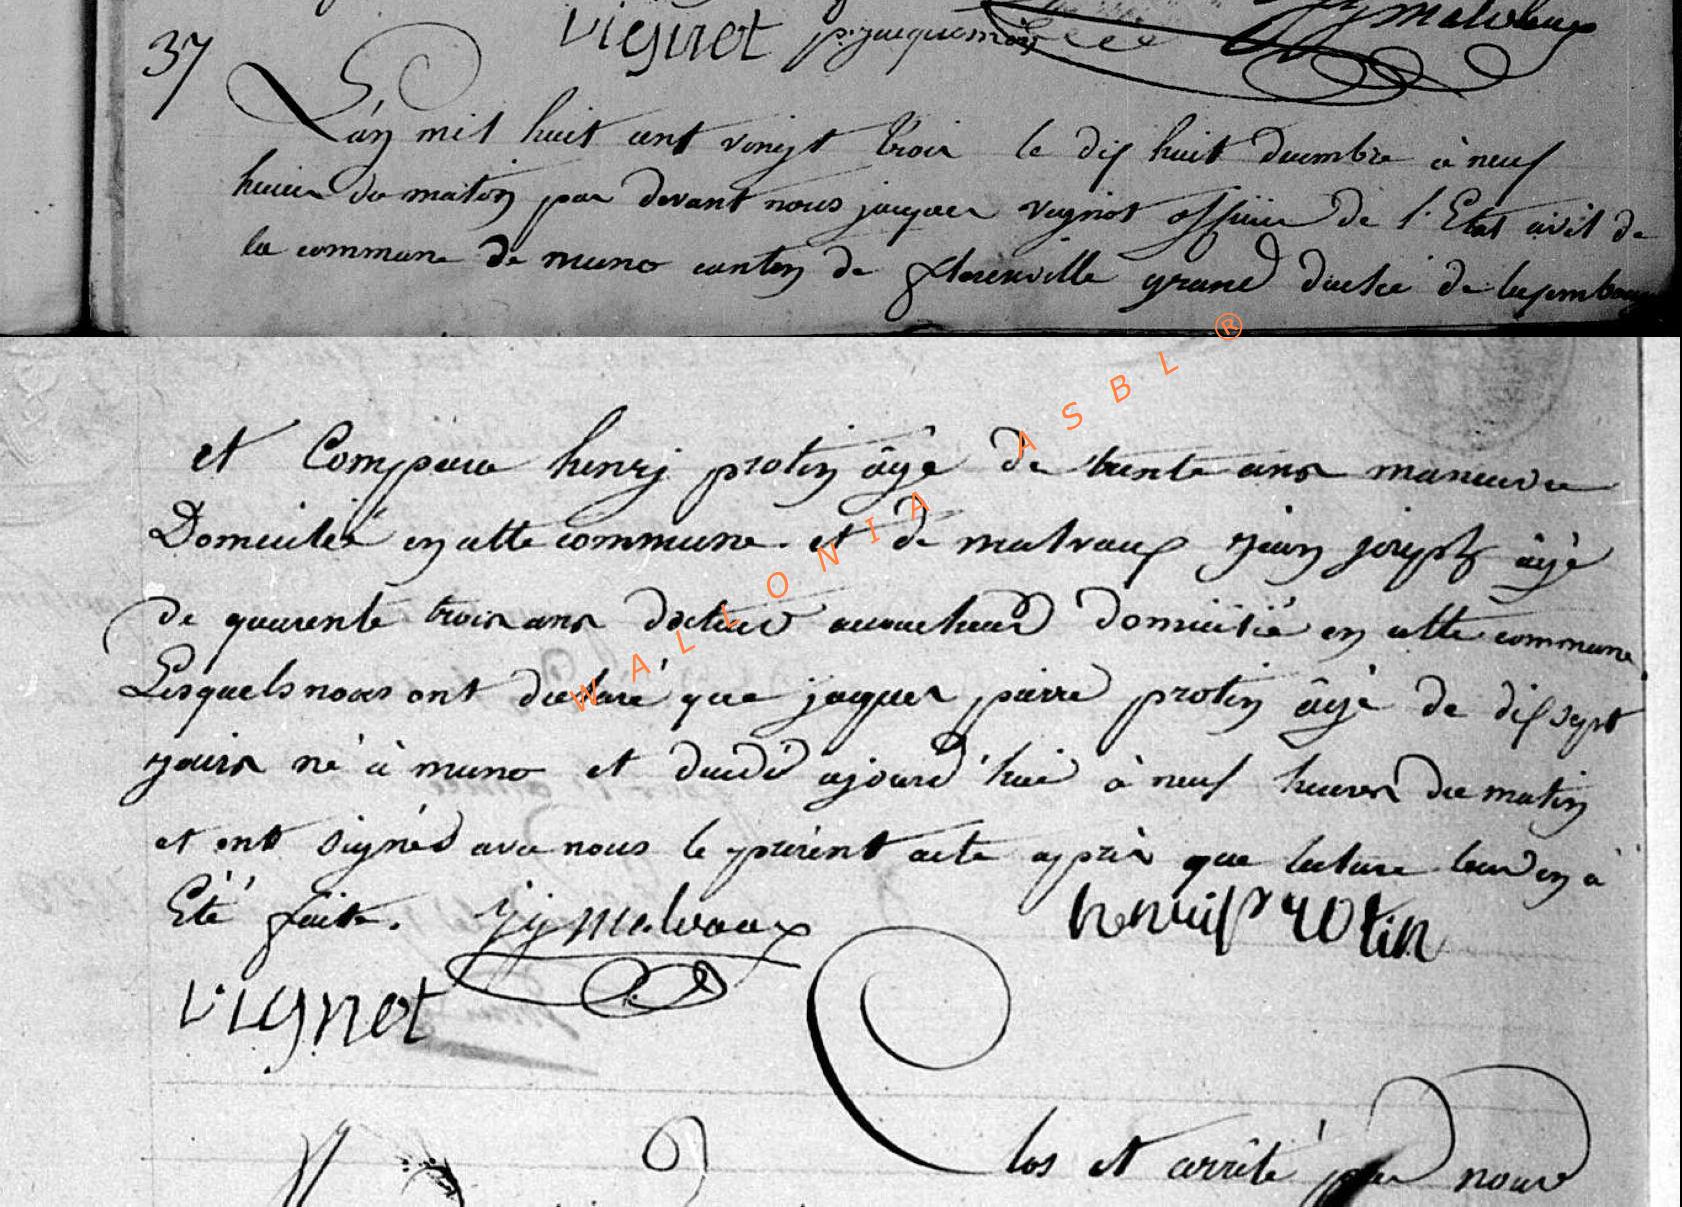 vignet p. jacquemin
37
L'an mil huit cent vingt trois le dix huit decembre à neuf
heures du matin par devant nous jacques vignot officier de l'Etat civil de
la commune de muno canton de florenville grand duché de luxembourg
WALLONIA ASBL ®
et Compara henry protin âgé de trente ans manuvre
Domicilié en cette commune. et de malvaux jean joseph âgé
de quarente trois ans docteur accoucheur domicilié en cette commune
Lesquels nous ont déclaré que jaques pierre protin âgé de dix sept
jours né à muno et decédé ajourd'hui à neuf heures du matin
et ont signés avec nous le présent acte après que lecture leur en à
Eté faite. jj Malvaux henri protin
vignet
Clos et arrêté par nous